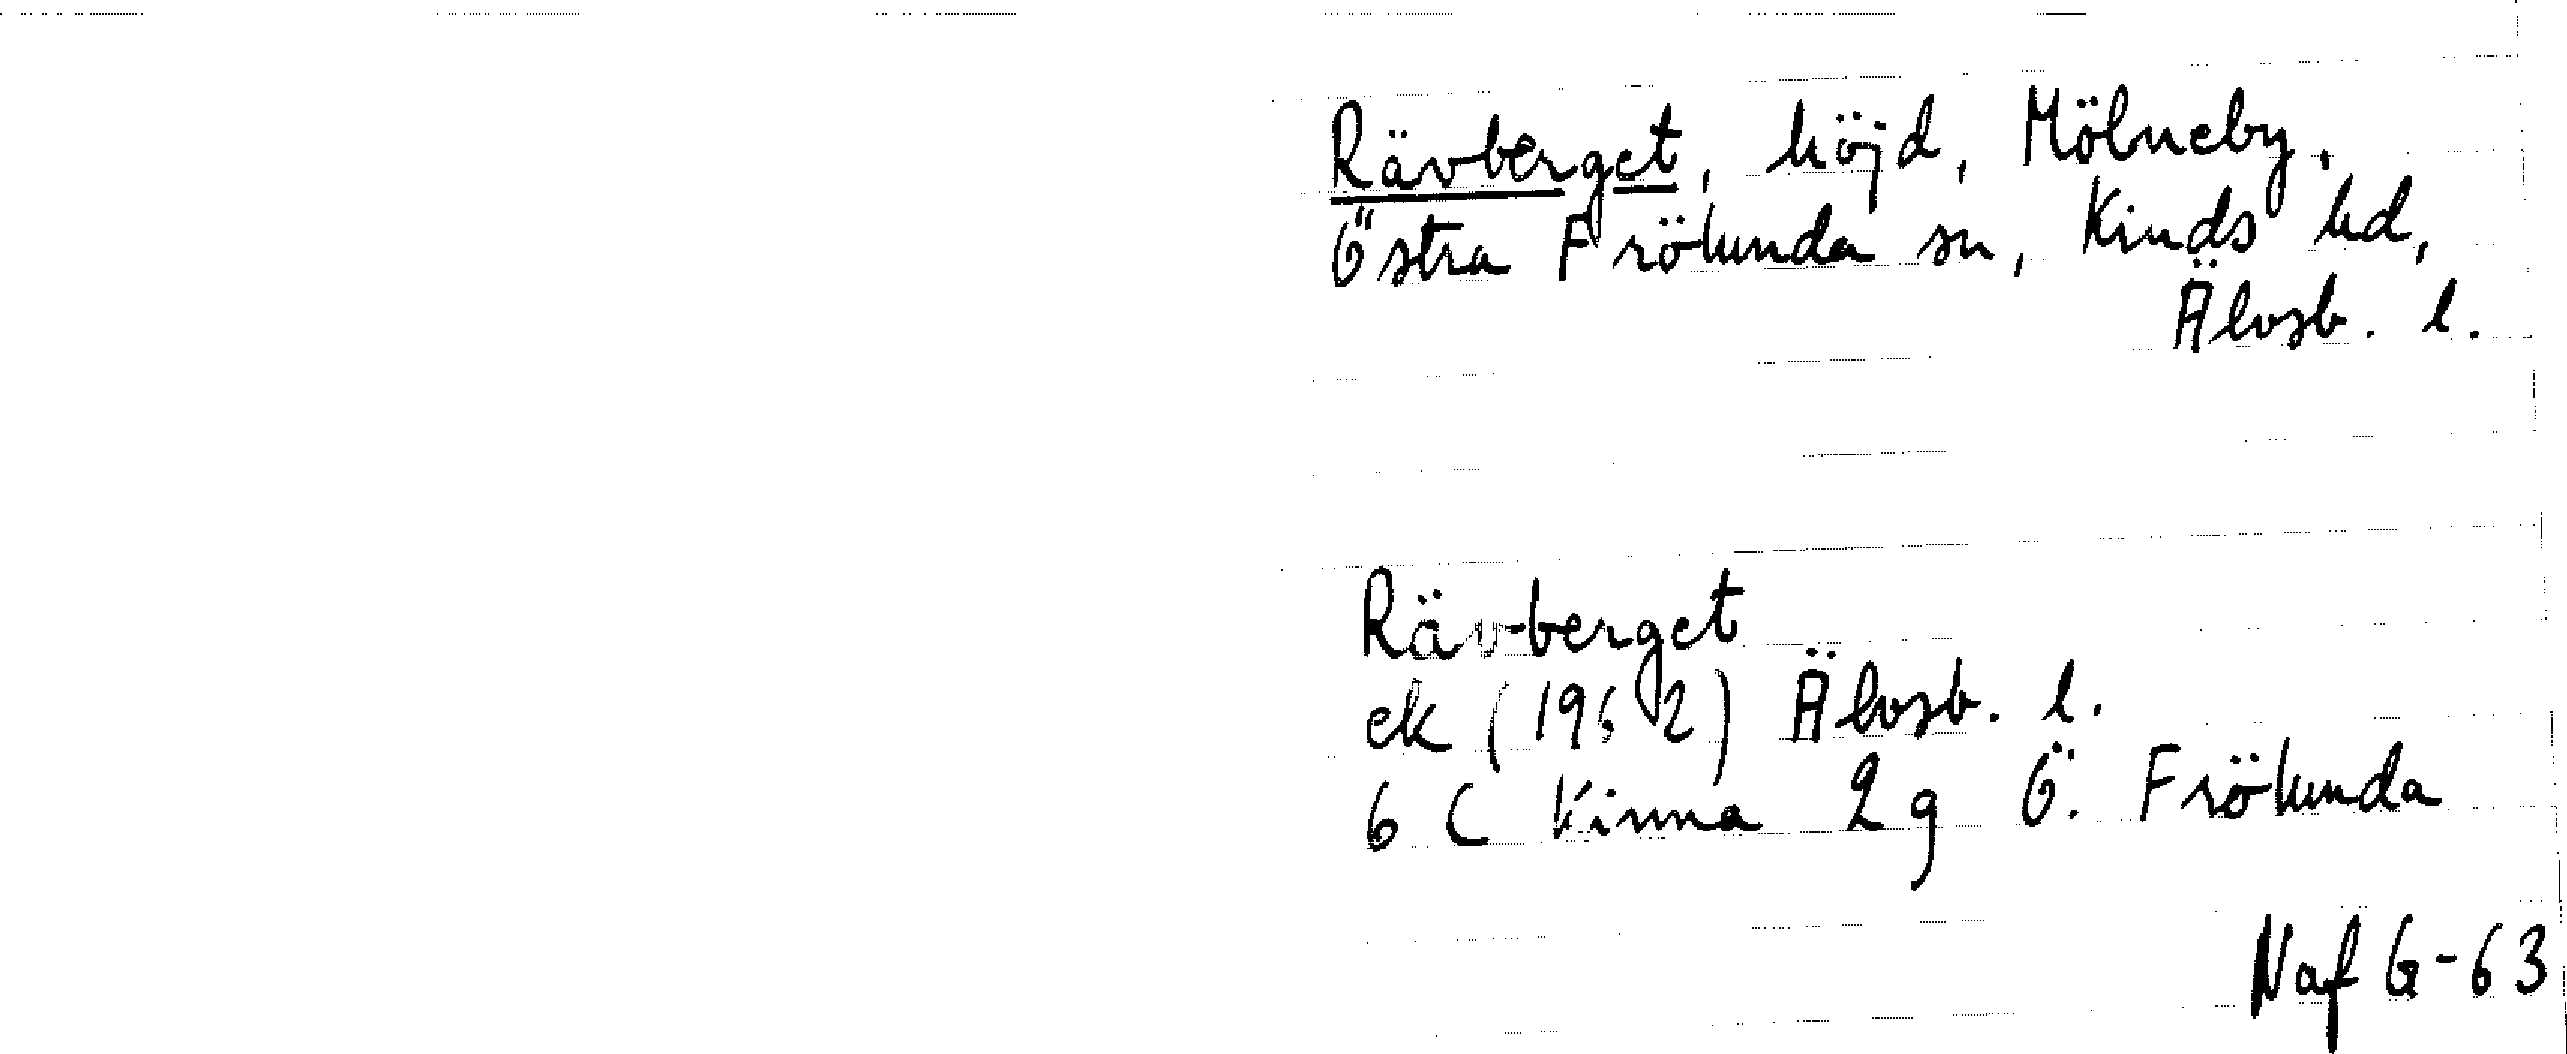 Rävberget, höjd, Mölneby,
Östra Frölunda sn, Kinds hd,
Älvsb. l.
Rävberget
ek (1952) Älvsb. l.
6 C Kinna 2g Ö. Frölunda
Naf G-63